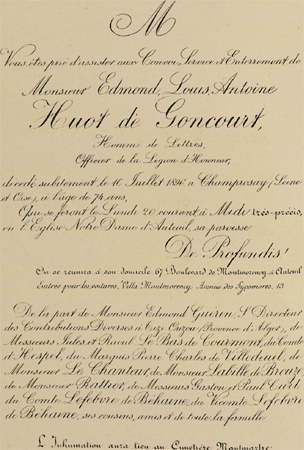 M
Vous êtes prié d'assister aux Convoi, Service et Enterrement de
Monsieur Edmond, Louis, Antoine
Huot de Goncourt,
Homme de Lettres,
Officier de la Légion d'Honneur,
décédé subitement le 16 Juillet 1896, à Champrosay (Seine
et Oise), à l'âge de 74 ans,
Qui se feront le Lundi 20 courant à Midi très-précis,
en l'Eglise Notre Dame d'Auteuil, sa paroisse
De Profundis!
On se réunira à son domicile 67 Boulevard de Montmorency à Auteuil
Entrée pour les voitures, Villa Montmorency, Avenue des Sycomores, 13
De la part de Monsieur Edmond Guérin, S. Directeur
des Contributions Diverses à Tizi Ouzou (Province d'Alger), de
Messieurs Jules et Raoul Le Bas de Courmont, du Comte
d'Hespel, du Marquis Pierre Charles de Villedeuil, de
Monsieur Le Chanteur, de Monsieur Labille de Breuze,
de Monsieur Rattier, de Messieurs Gaston et Paul
du Comte Lefebvre de Béhaine, du Vicomte Lefebvre
de Béhaine, ses cousins, amis et de toute la famille
L'Inhumation aura lieu au Cimetière Montmartre